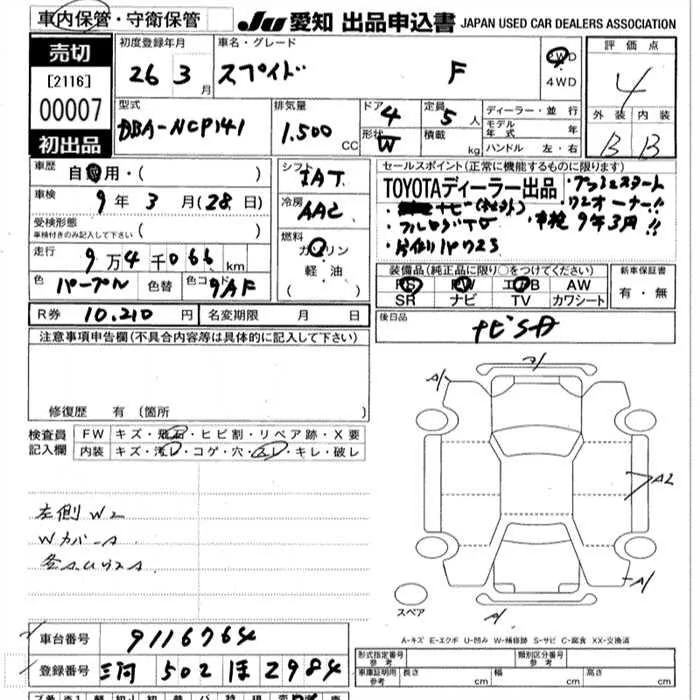 車内保管・守衛保管
JU 愛知 出品申込書 JAPAN USED CAR DEALERS ASSOCIATION
売切
[2116]
00007
初出品
初度登録年月
26 3月
車名・グレード
スペイド F
2WD
4WD
評価点
4
外装 内装
B B
型式
DBA-NCP141
排気量
1.500 CC
ドア 4
形状 W
定員 5人
積載 kg
ディーラー・並行
モデル年式 年
ハンドル 左・右
車歴 自家用・( )
車検 9年 3月(28日)
受検形態
車検付きのみ記入して下さい ( )
走行 9万4千066km
色 パープル 色替 色コード 9AF
シフト IAT
冷房 AAC
燃料
ガソリン
軽・油
( )
セールスポイント(正常に機能するものに限ります)
TOYOTAディーラー出品
・ワンオーナー!!
・フルセグTV
車検9年3月!!
装備品(純正品に限り○をつけてください)
PS PW エアB AW
SR ナビ TV カワシート
新車保証書
有・無
R券 10,210円 名変期限 月 日
後日品
ナビSD
注意事項申告欄(不具合内容等は具体的に記入して下さい)
修復歴 有(箇所 )
検査員記入欄
FW キズ・飛石・ヒビ割・リペア跡・X要
内装 キズ・汚レ・コゲ・穴・スレ・キレ・破レ
左側W2
WカバーA
A1
A1
A2
A1
A1
スペア
A-キズ E-エクボ U-凹み W-補修跡 S-サビ C-腐食 XX-交換済
車台番号 9116764
登録番号 三河 502 ほ 2984
形式指定番号 参考
類別区分番号 参考
車庫証明用 参考 長さ cm 幅 cm 高さ cm